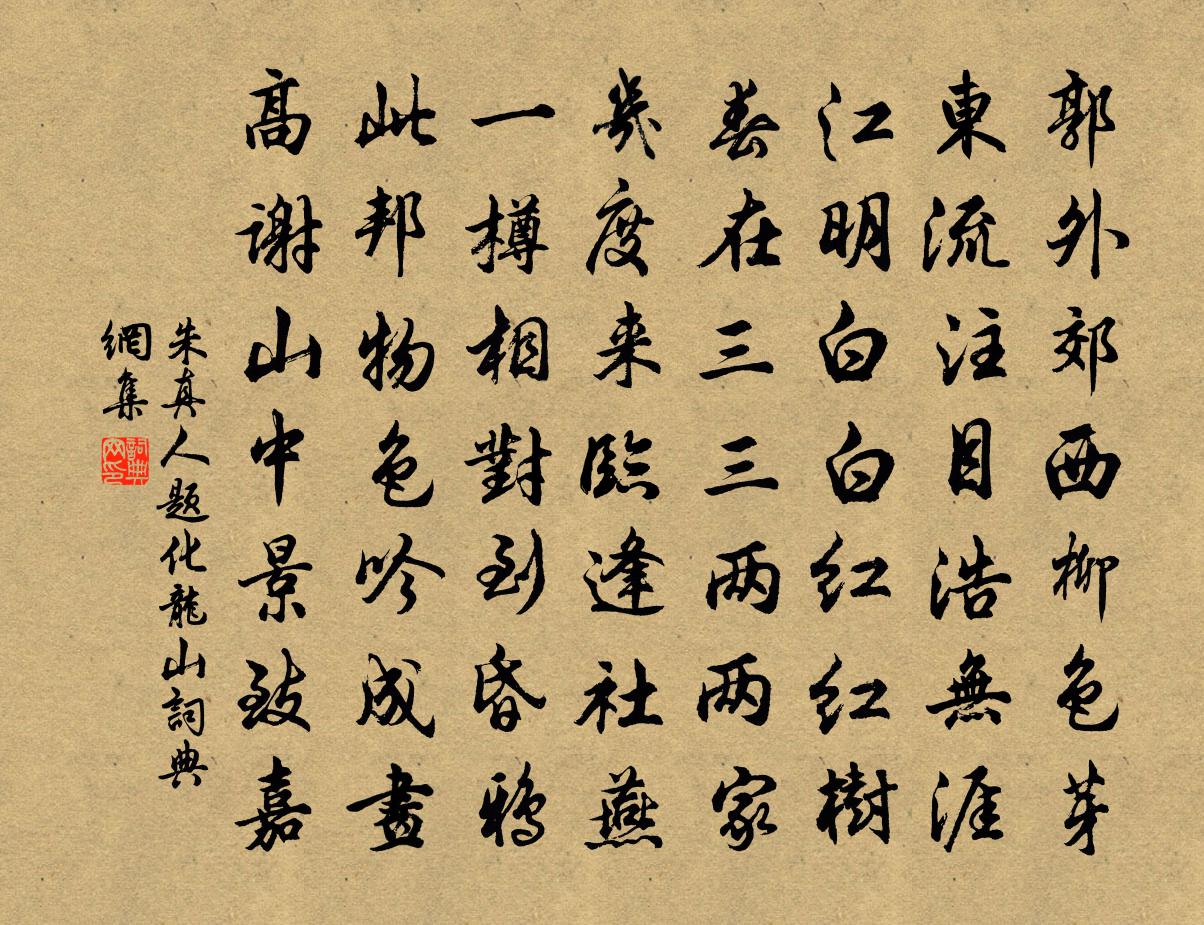 郭外郊西柳色芽
東流注目浩無涯
江明白白红红樹
春在三三两两家
幾度来臨逢社燕
一樽相對到昏鴉
此邦物色吟成畫
高谢山中景致嘉
朱真人题化龍山詞典
網集
詞典
网印